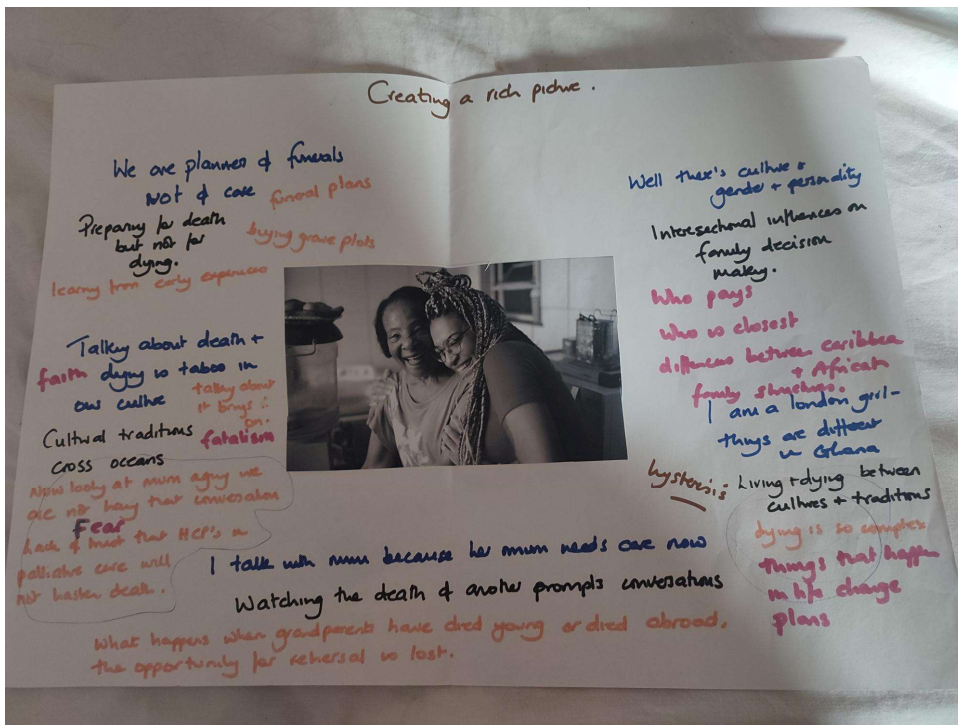 Creating a rich picture.
We are planners of funerals
Not of care
funeral plans
Preparing for death
but not for
dying.
buying grave plots
learning from early experiences
Talking about death +
faith dying is taboo in
our culture
talking about
it brings it
on.
Cultural traditions fatalism
cross oceans
Now looking at mum aging we
are not having that conversation
Fear
Lack of trust that HCP's in
palliative care will
not hasten death.
I talk with mum because her mum needs care now
Watching the death of another prompts conversations
What happens when grandparents have died young or died abroad.
the opportunity for rehersal is lost.
Well there's culture +
gender + personality
Intersectional influences on
family decision
making.
Who pays
Who is closest
differences between caribbean
+ African
family structures.
I am a london girl -
things are different
in Ghana
hysterisis
Living + dying between
cultures + traditions
dying is so complex
things that happen
in life change
plans